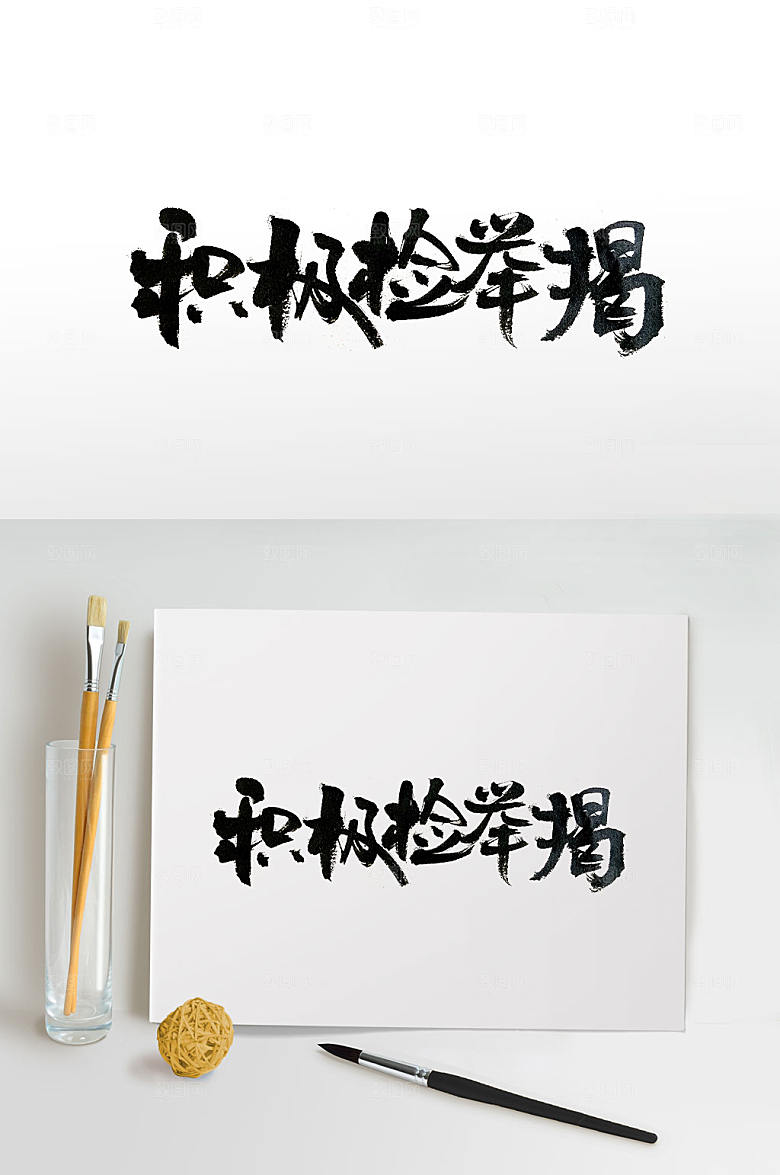 积极检举揭
积极检举揭